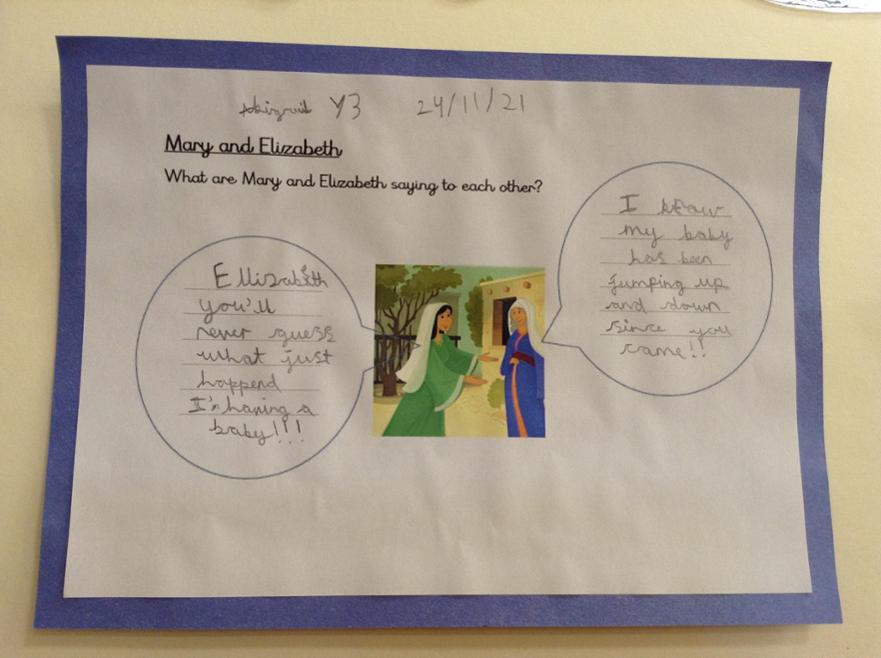 Abigail Y3 24/11/21
Mary and Elizabeth
What are Mary and Elizabeth saying to each other?
Ellizabeth
you'll
never guess
what just
happend
I'm having a
baby!!!
I know
my baby
has been
jumping up
and down
since you
came!!